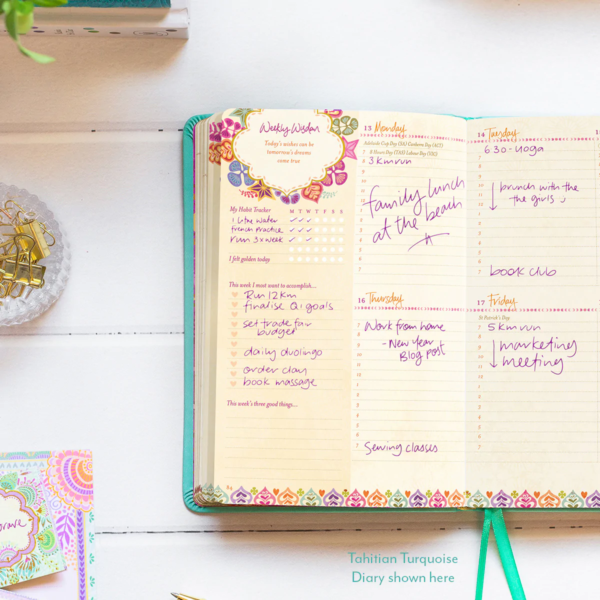 Weekly Wisdom
Today's wishes can be
tomorrow's dreams
come true
My Habit Tracker M T W T F S S
1 litre water
french practice
run 3 x week
I felt golden today
This week I most want to accomplish...
Run 12km
finalise Q1 goals
set trade fair
budget
daily duolingo
order clay
book massage
This week's three good things...
84
13 Monday
Adelaide Cup Day (SA) Canberra Day (ACT)
8 Hours Day (TAS) Labour Day (VIC)
3 km run
family lunch
at the beach
14 Tuesday
6 30 - yoga
brunch with the
the girls
book club
16 Thursday
Work from home
- New Year
Blog post
Sewing classes
17 Friday
St Patrick's Day
5 km run
marketing
meeting
brave
Tahitian Turquoise
Diary shown here